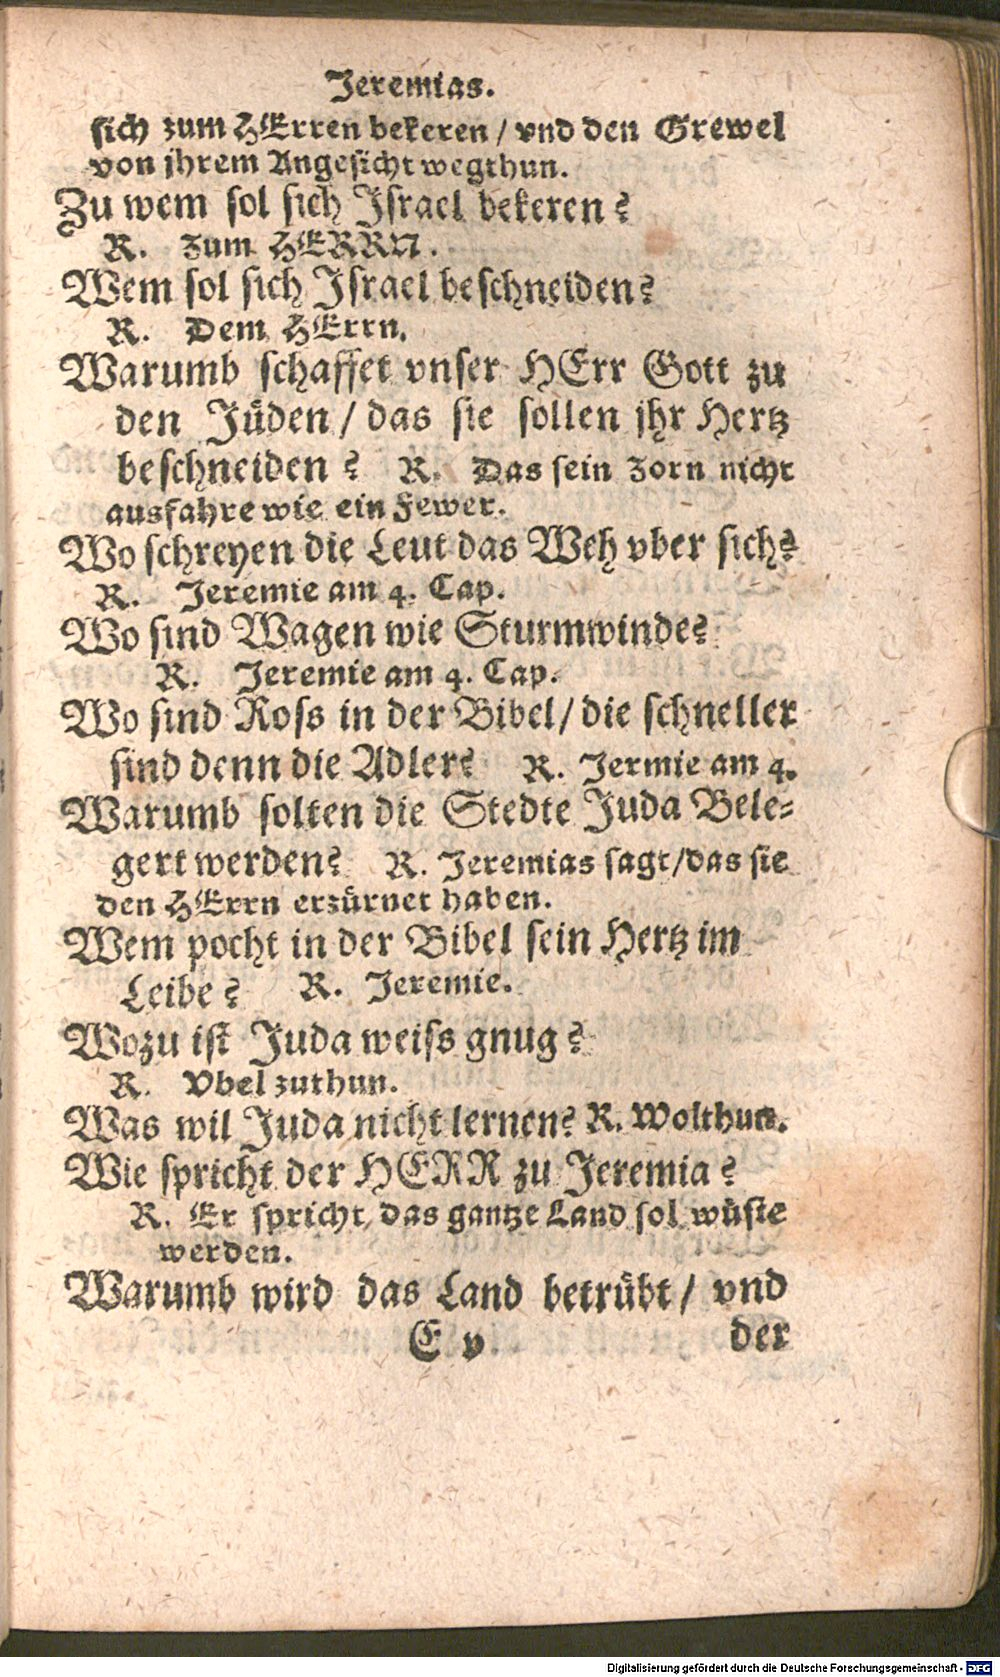 Jeremias.
sich zum HErren bekeren / vnd den Grewel
von jhrem Angesicht wegthun.
Zu wem sol sich Israel bekeren?
R. Zum HERRN.
Wem sol sich Israel beschneiden?
R. Dem HErrn.
Warumb schaffet vnser HErr Gott zu
den Jüden / das sie sollen jhr Hertz
beschneiden? R. Das sein Zorn nicht
ausfahre wie ein Fewer.
Wo schreyen die Leut das Weh vber sich?
R. Jeremie am 4. Cap.
Wo sind Wagen wie Sturmwinde?
R. Jeremie am 4. Cap.
Wo sind Ross in der Bibel / die schneller
sind denn die Adler? R. Jermie am 4.
Warumb solten die Stedte Juda Bele-
gert werden? R. Jeremias sagt / das sie
den HErrn erzürnet haben.
Wem pocht in der Bibel sein Hertz im
Leibe? R. Jeremie.
Wozu ist Juda weiss gnug?
R. Vbel zuthun.
Was wil Juda nicht lernen? R. Wolthun.
Wie spricht der HERR zu Jeremia?
R. Er spricht, das gantze Land sol wüste
werden.
Warumb wird das Land betrübt / vnd
E v der
Digitalisierung gefördert durch die Deutsche Forschungsgemeinschaft - DFG